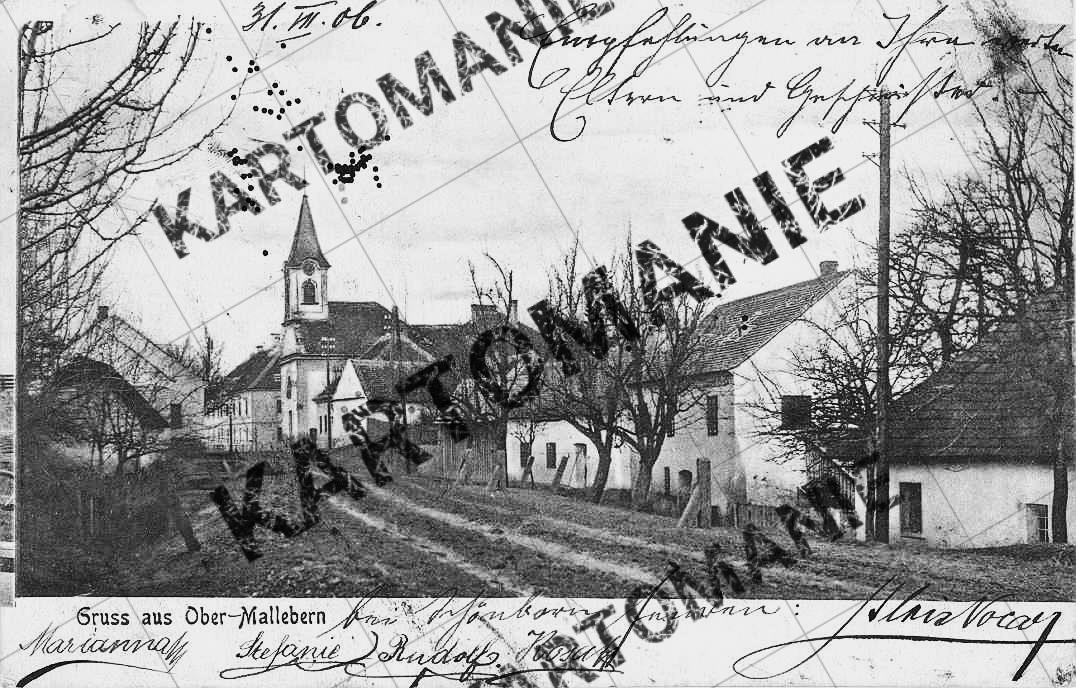 31. VII. 06.
Empfehlungen an Ihre werten
Eltern und Geschwister. –
KARTOMANIE
KARTOMANIE
KARTOMANIE
KARTOMANIE
Gruss aus Ober-Mallebern bei Schönborn senden :
Marianna Stefanie Rudolf